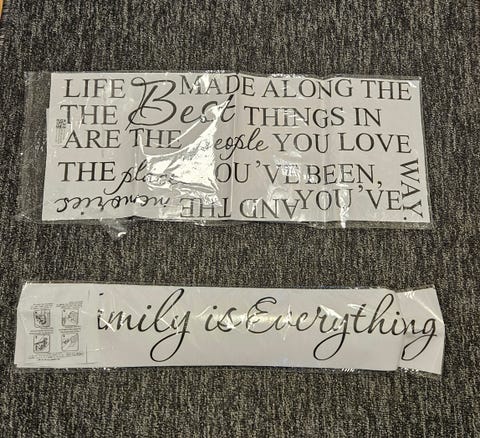 LIFE MADE ALONG THE
THE Best THINGS IN
ARE THE people YOU LOVE
THE places YOU'VE BEEN,
memories AND THE YOU'VE WAY.
amily is Everything